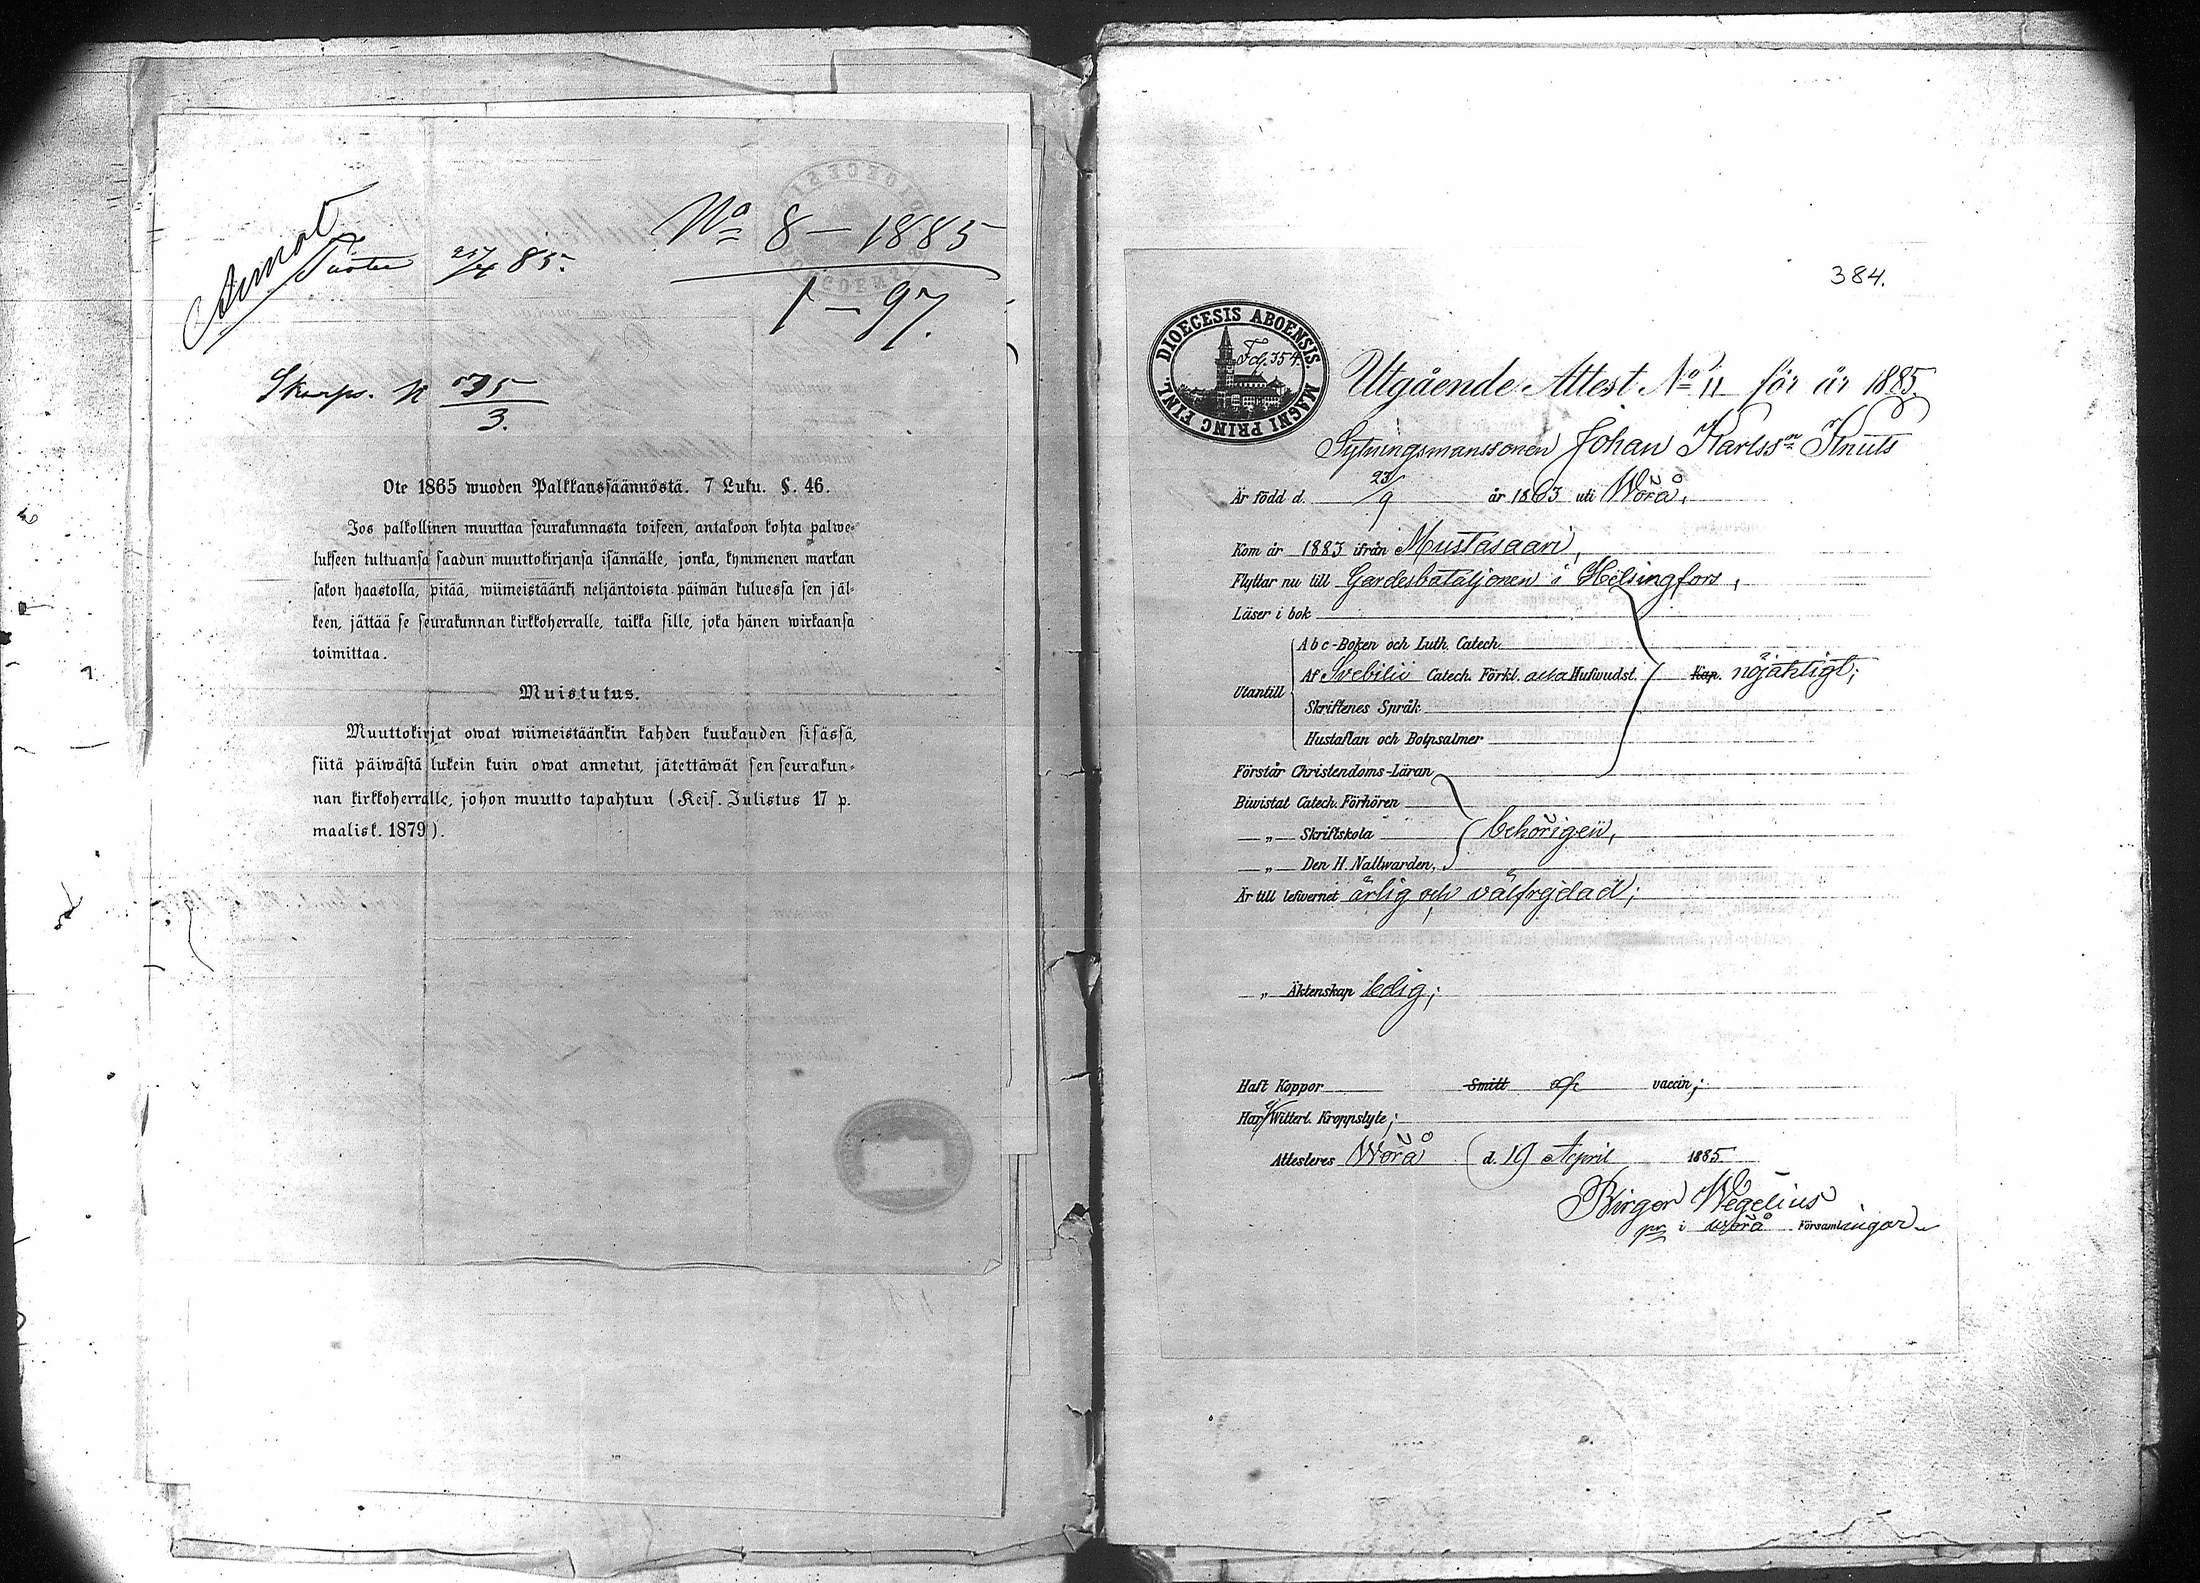 No 8 — 1885
1 — 97.
25/4 85.
Skarps. N 535
3.
Ote 1865 wuoden Palkkanssäännöstä. 7 Luku. §. 46.
Jos palkollinen muuttaa seurakunnasta toiseen, antakoon kohta palwe-
lukseen tultuansa saadun muuttokirjansa isännälle, jonka, kymmenen markan
sakon haastolla, pitää, wiimeistäänki neljäntoista päiwän kuluessa sen jäl-
keen, jättää se seurakunnan kirkkoherralle, taikka sille, joka hänen wirkaansa
toimittaa.
Muistutus.
Muuttokirjat owat wiimeistäänkin kahden kuukauden sisässä,
siitä päiwästä lukein kuin owat annetut, jätettäwät sen seurakun-
nan kirkkoherralle, johon muutto tapahtuu (Keis. Julistus 17 p.
maalisk. 1879).
384.
DIOECESIS ABOENSIS MAGNI PRINC FINL.
Fg. 354.
Utgående Attest No 11 för år 1885.
Sytningsmanssonen Johan Karlsson Knuts
Är född d. 23/9 år 1863 uti Wörå,
Kom år 1883 ifrån Mustasaari,
Flyttar nu till Gardesbataljonen i Helsingfors,
Läser i bok
Utantill
Abc-Boken och Luth. Catech.
Af Svebilii Catech. Förkl. alla Hufwudst. Kap. nöjaktigt;
Skriftenes Språk
Hustaflan och Botpsalmer
Förstår Christendoms-Läran
Biwistat Catech. Förhören
„ Skriftskola behörigen,
„ Den H. Nattwarden,
Är till lefwernet ärlig och välfrejdad;
„ Äktenskap ledig;
Haft Koppor Smitt af vaccin;
Har ej Witterl. Kroppslyte;
Attesteres Wörå d. 19 April 1885
Birger Wegelius
i Wörå Församlingar